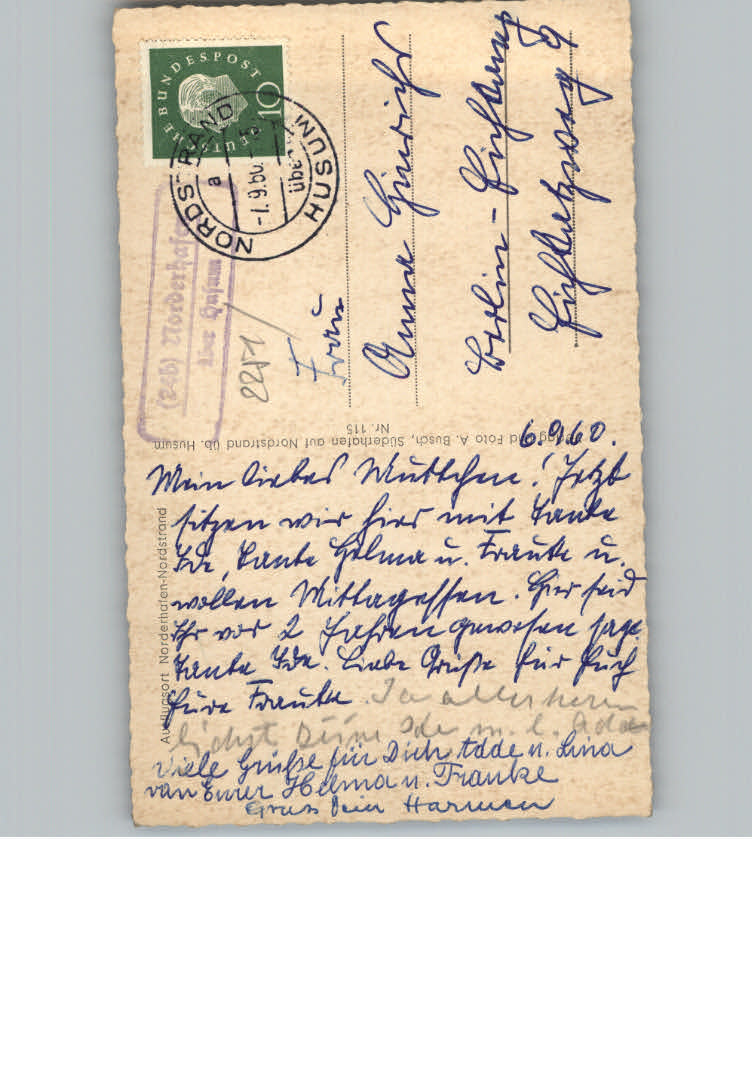 DEUTSCHE BUNDESPOST
10
NORDSTRAND
über HUSUM
a
-7.9.60.
(24b) Norderhafen
über Husum
2251
Frau
Anna Hinrichs
Berlin-Eichkamp
Eichkatzweg 9
Verlag und Foto A. Busch, Süderhafen auf Nordstrand üb. Husum
Nr. 115
Ausflugsort Norderhafen-Nordstrand
6.9.60.
Mein liebes Muttchen! Jetzt
sitzen wir hier mit Tante
Ide, Tante Helma u. Frauke u.
wollen Mittagessen. Hier seid
Ihr vor 2 Jahren gewesen sagt
Tante Ide. Liebe Grüße für Euch
Eure Frauke.
herz
lichst Deine Ide m. l.
Viele Grüße für Dich, Adde u. Lina
von Eurer Helma u. Frauke
Gruss Dein Harmen